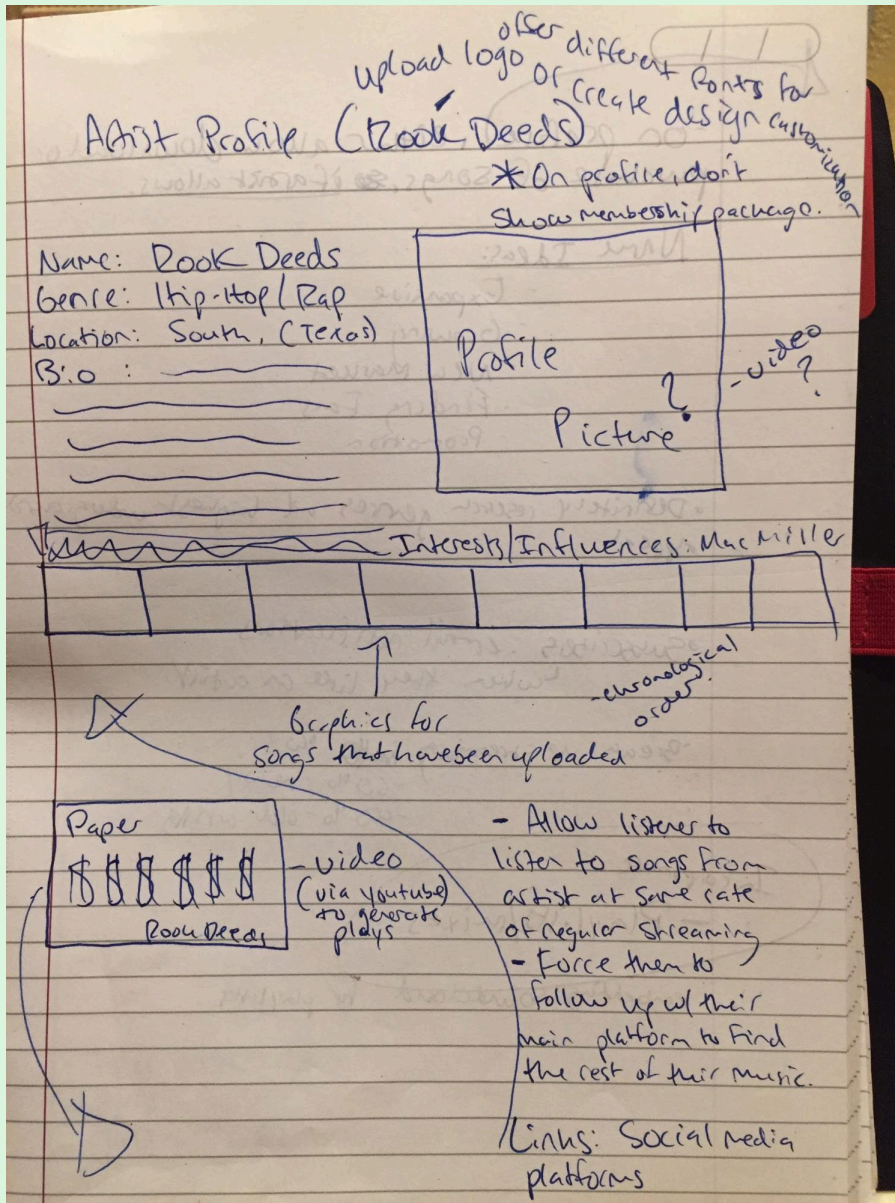 upload logo
or
Create design
offer different fonts for
customization
Artist Profile (Rook Deeds)
* On profile, don't
show membership package.
Name: Rook Deeds
Genre: Hip-Hop/Rap
Location: South, (Texas)
Bio :
Profile
Picture
?
- video
?
Interests/Influences: Mac Miller
Graphics for
songs that have been uploaded
- chronological
order.
Paper
$ $ $ $ $ $
Rook Deeds
- video
(via youtube)
to generate
plays
- Allow listener to
listen to songs from
artist at same rate
of regular streaming
- Force them to
follow up w/ their
main platform to find
the rest of their music.
Links: Social media
platforms